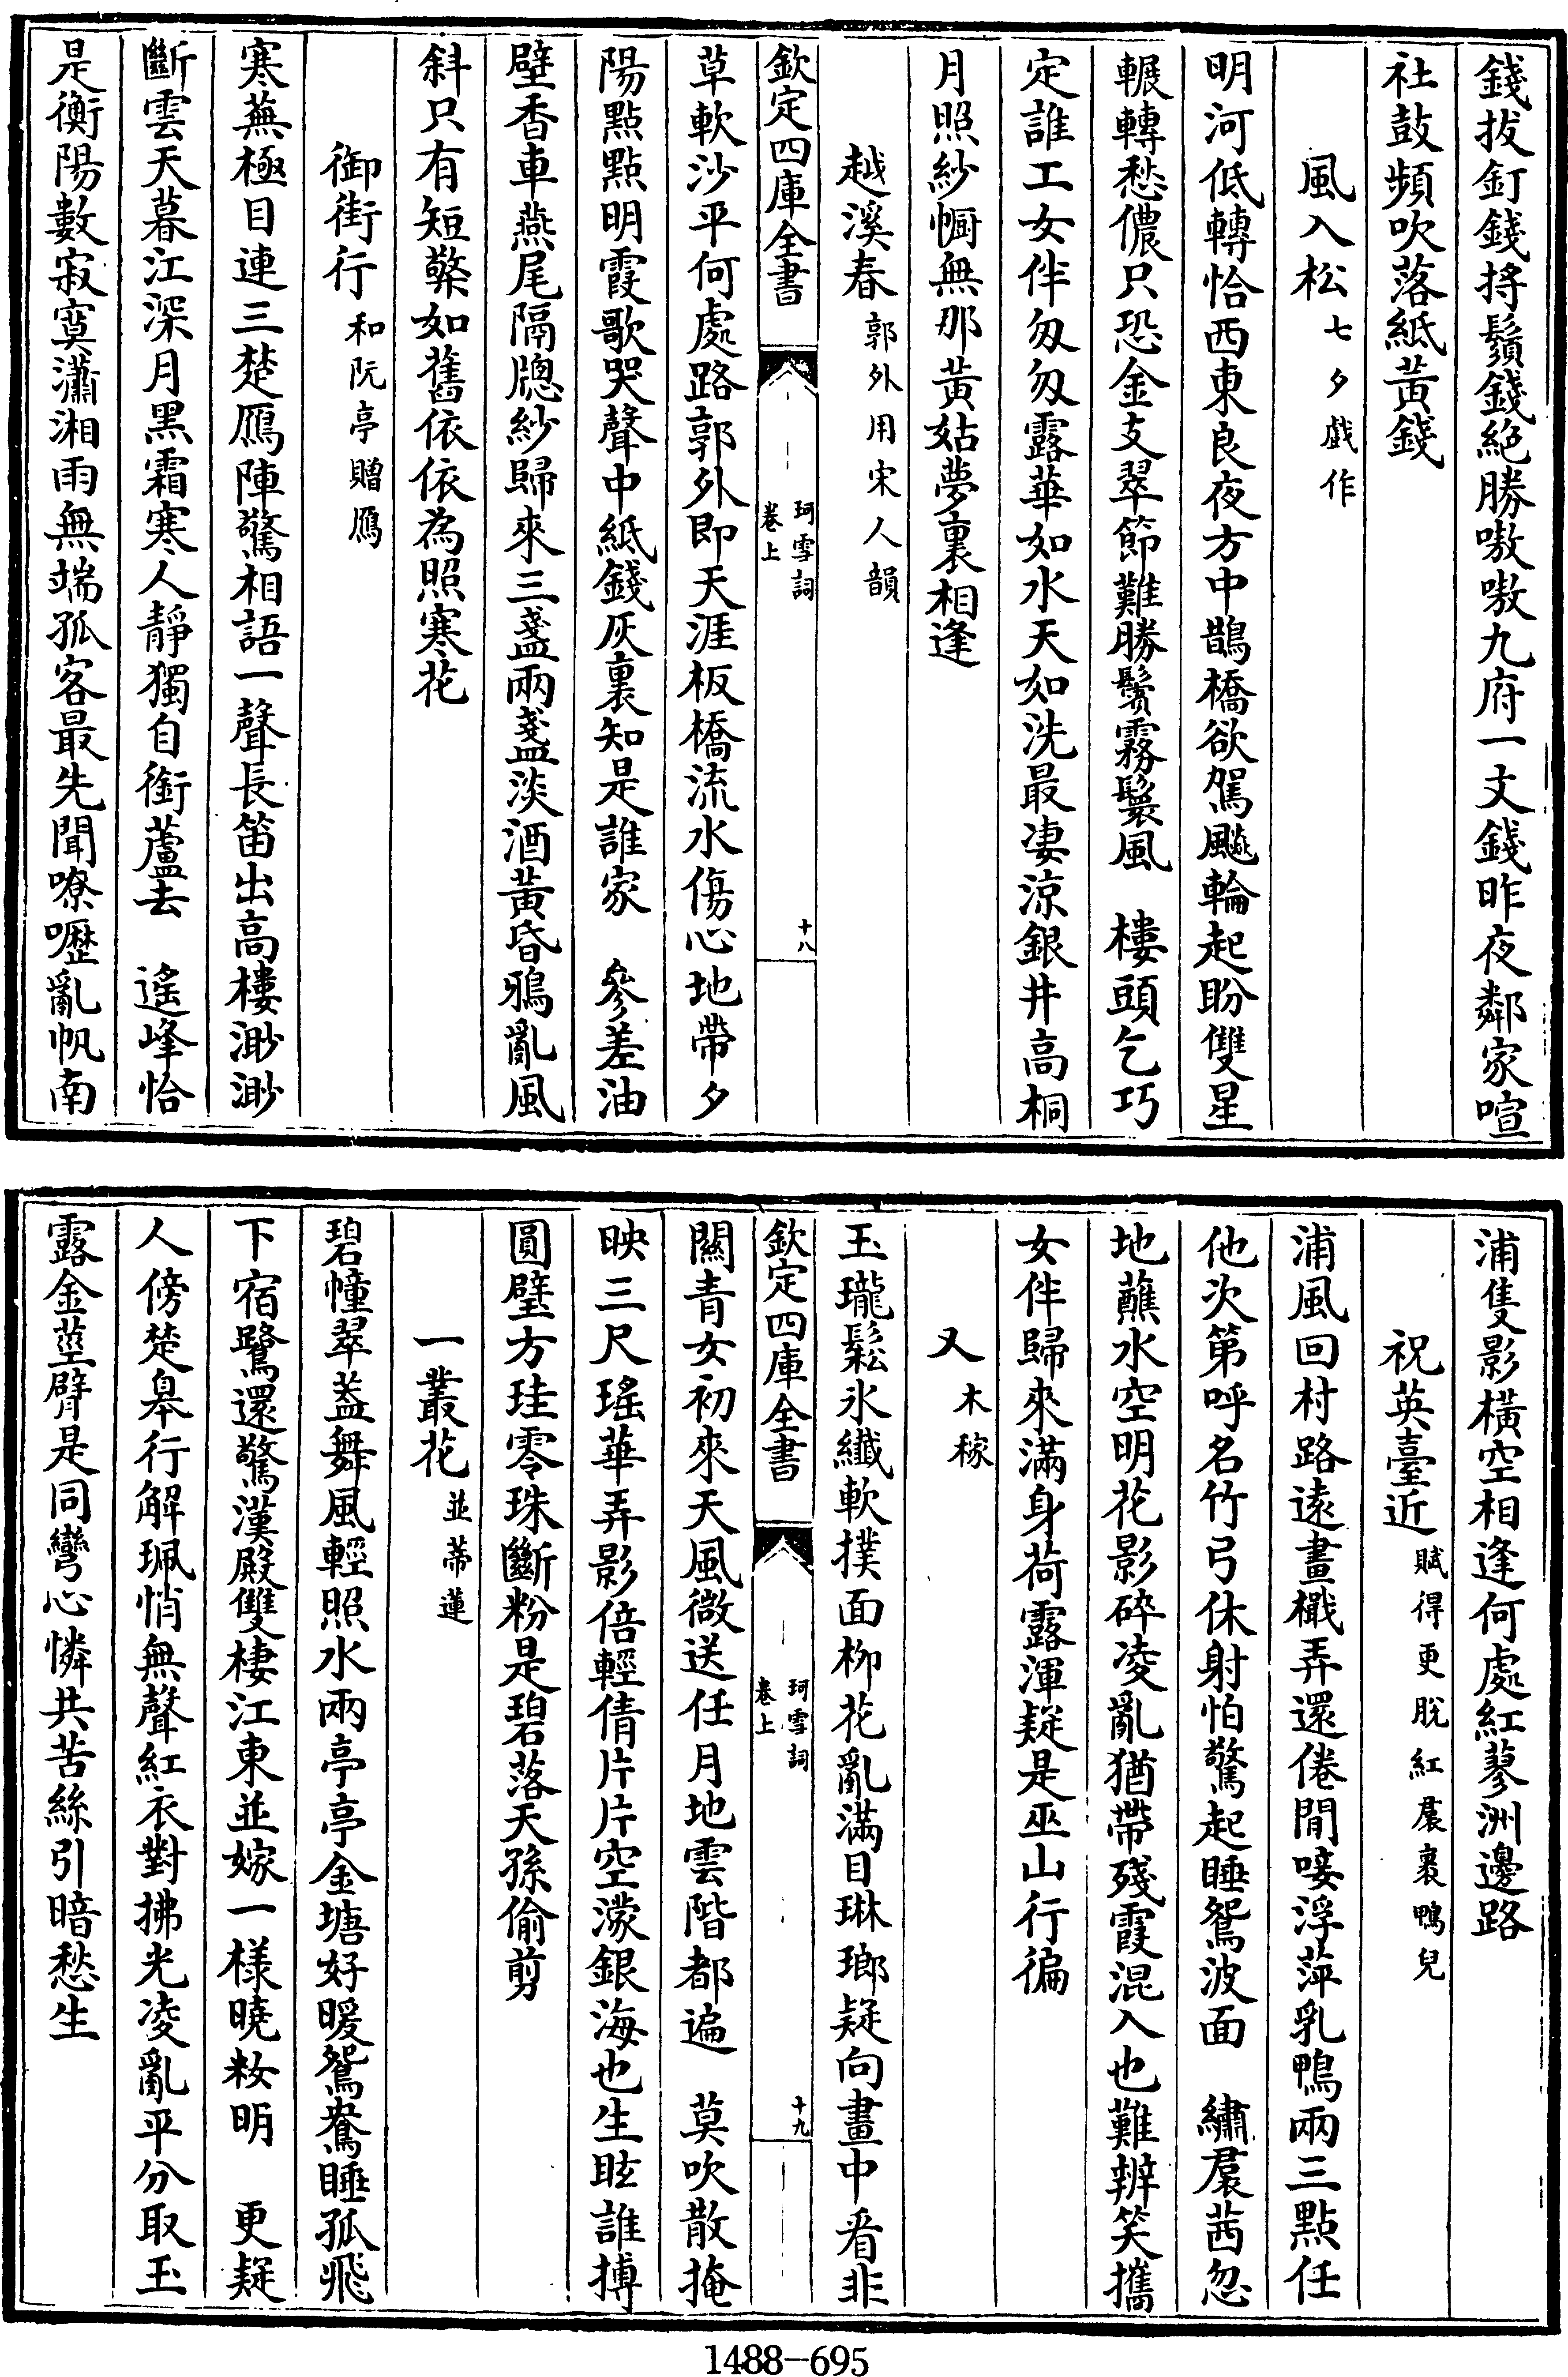 錢拔釘錢捋鬚錢絶勝嗷嗷九府一文錢昨夜鄰家喧
社鼓頻吹落紙黃錢
風入松七夕戲作
明河低轉恰西東良夜方中鵲橋欲駕飈輪起盼雙星
輾轉愁儂只恐金支翠節難勝鬢霧鬟風　樓頭乞巧
定誰工女伴匆匆露華如水天如洗最凄涼銀井高桐
月照紗幮無那黃姑夢裏相逢
越溪春郭外用宋人韻
欽定四庫全書
珂雪詞
卷上
十八
草軟沙平何處路郭外即天涯板橋流水傷心地帶夕
陽點點明霞歌哭聲中紙錢灰裏知是誰家　參差油
壁香車燕尾隔牕紗歸來三盞兩盞淡酒黃昏鴉亂風
斜只有短檠如舊依依為照寒花
御街行和阮亭贈鴈
寒蕪極目連三楚鴈陣驚相語一聲長笛出高樓渺渺
斷雲天暮江深月黑霜寒人靜獨自銜蘆去　遙峰恰
是衡陽數寂寞瀟湘雨無端孤客最先聞嘹嚦亂帆南
浦隻影橫空相逢何處紅蓼洲邊路
祝英臺近賦得更脫紅裠裹鴨兒
浦風回村路遠畫檝弄還倦閒唼浮萍乳鴨兩三點任
他次第呼名竹弓休射怕驚起睡鴛波面　繡裠茜忽
地蘸水空明花影碎凌亂猶帶殘霞混入也難辨笑攜
女伴歸來滿身荷露渾疑是巫山行徧
又木稼
玉瓏鬆氷纖軟撲面柳花亂滿目琳瑯疑向畫中看非
欽定四庫全書
珂雪詞
卷上
十九
關青女初來天風微送任月地雲階都遍　莫吹散掩
映三尺瑤華弄影倍輕倩片片空濛銀海也生眩誰摶
圓璧方珪零珠斷粉是碧落天孫偷剪
一叢花並蒂蓮
碧幢翠蓋舞風輕照水兩亭亭金塘好暖鴛鴦睡孤飛
下宿鷺還驚漢殿雙棲江東並嫁一樣曉粧明　更疑
人傍楚皋行解珮悄無聲紅衣對拂光凌亂平分取玉
露金莖臂是同彎心憐共苦絲引暗愁生
1488-695